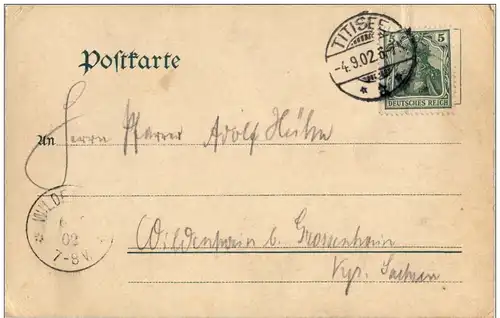 Postkarte
TITISEE
-4.9.02.6-7
5 5
DEUTSCHES REICH
An Herrn Pfarrer Adolf Hühn
WILDE
02
7-8V.
Wildenhain b. Grossenhain
Kgr. Sachsen